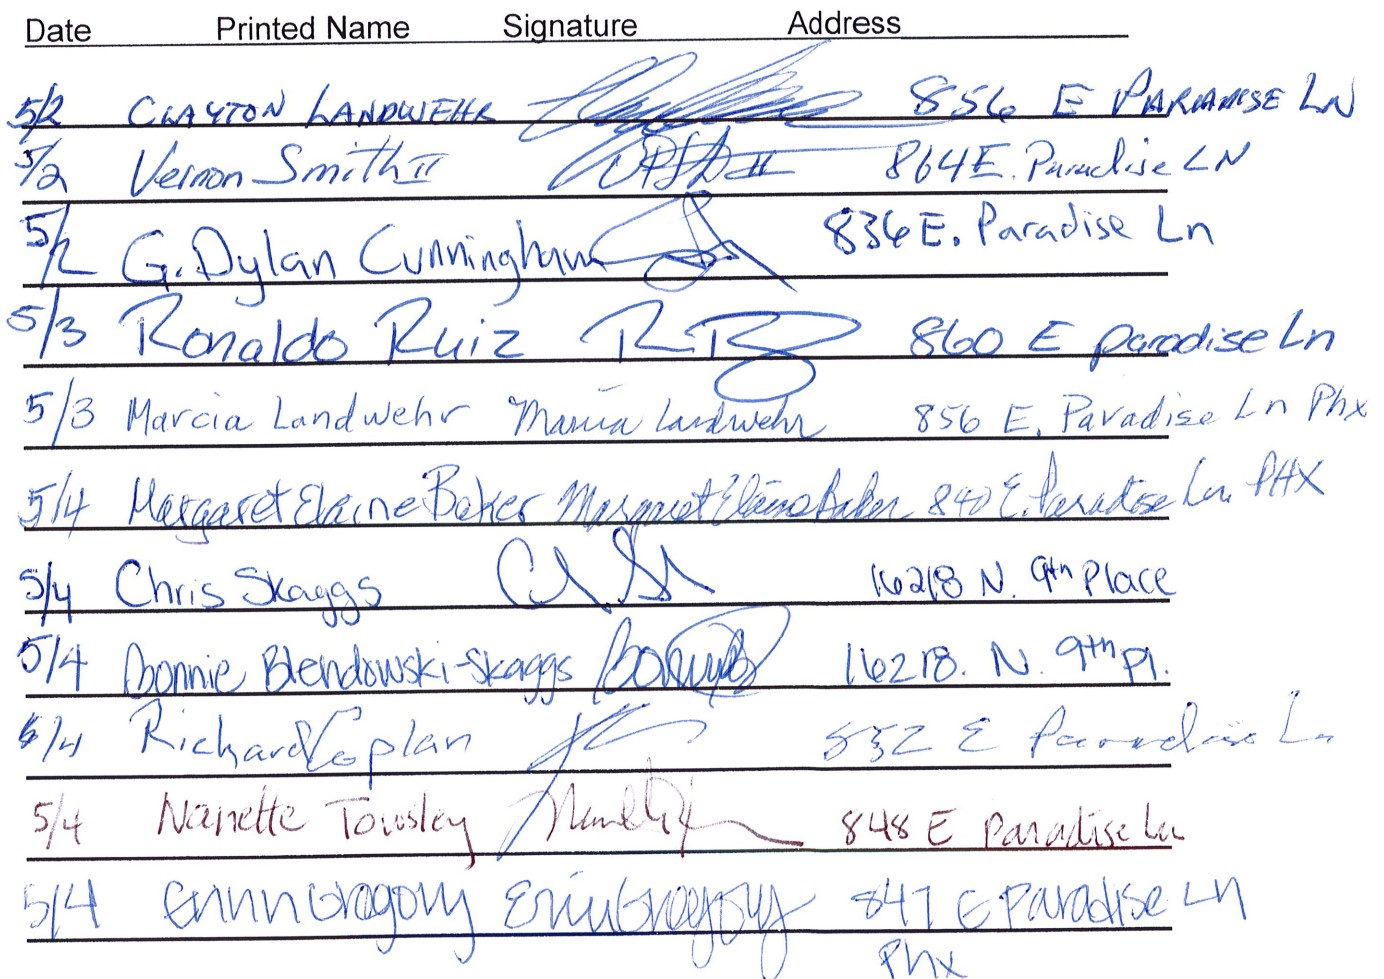 Date Printed Name Signature Address
5/2 CLAYTON LANDWEHR 856 E PARADISE LN
5/2 Vernon Smith II 864 E. Paradise LN
5/2 G. Dylan Cunningham 836 E. Paradise Ln
5/3 Ronaldo Ruiz 860 E paradise Ln
5/3 Marcia Landwehr Marcia Landwehr 856 E. Paradise Ln Phx
5/4 Margaret Elaine Baker Margaret Elaine Baker 840 E. Paradise Ln PHX
5/4 Chris Skaggs 16218 N. 9th Place
5/4 Bonnie Blendowski-Skaggs 16218. N. 9th Pl.
5/4 Richard Caplan 832 E Paradise Ln
5/4 Nanette Towsley 848 E Paradise Ln
5/4 Gregory Erin Gregory 847 E Paradise Ln
Phx